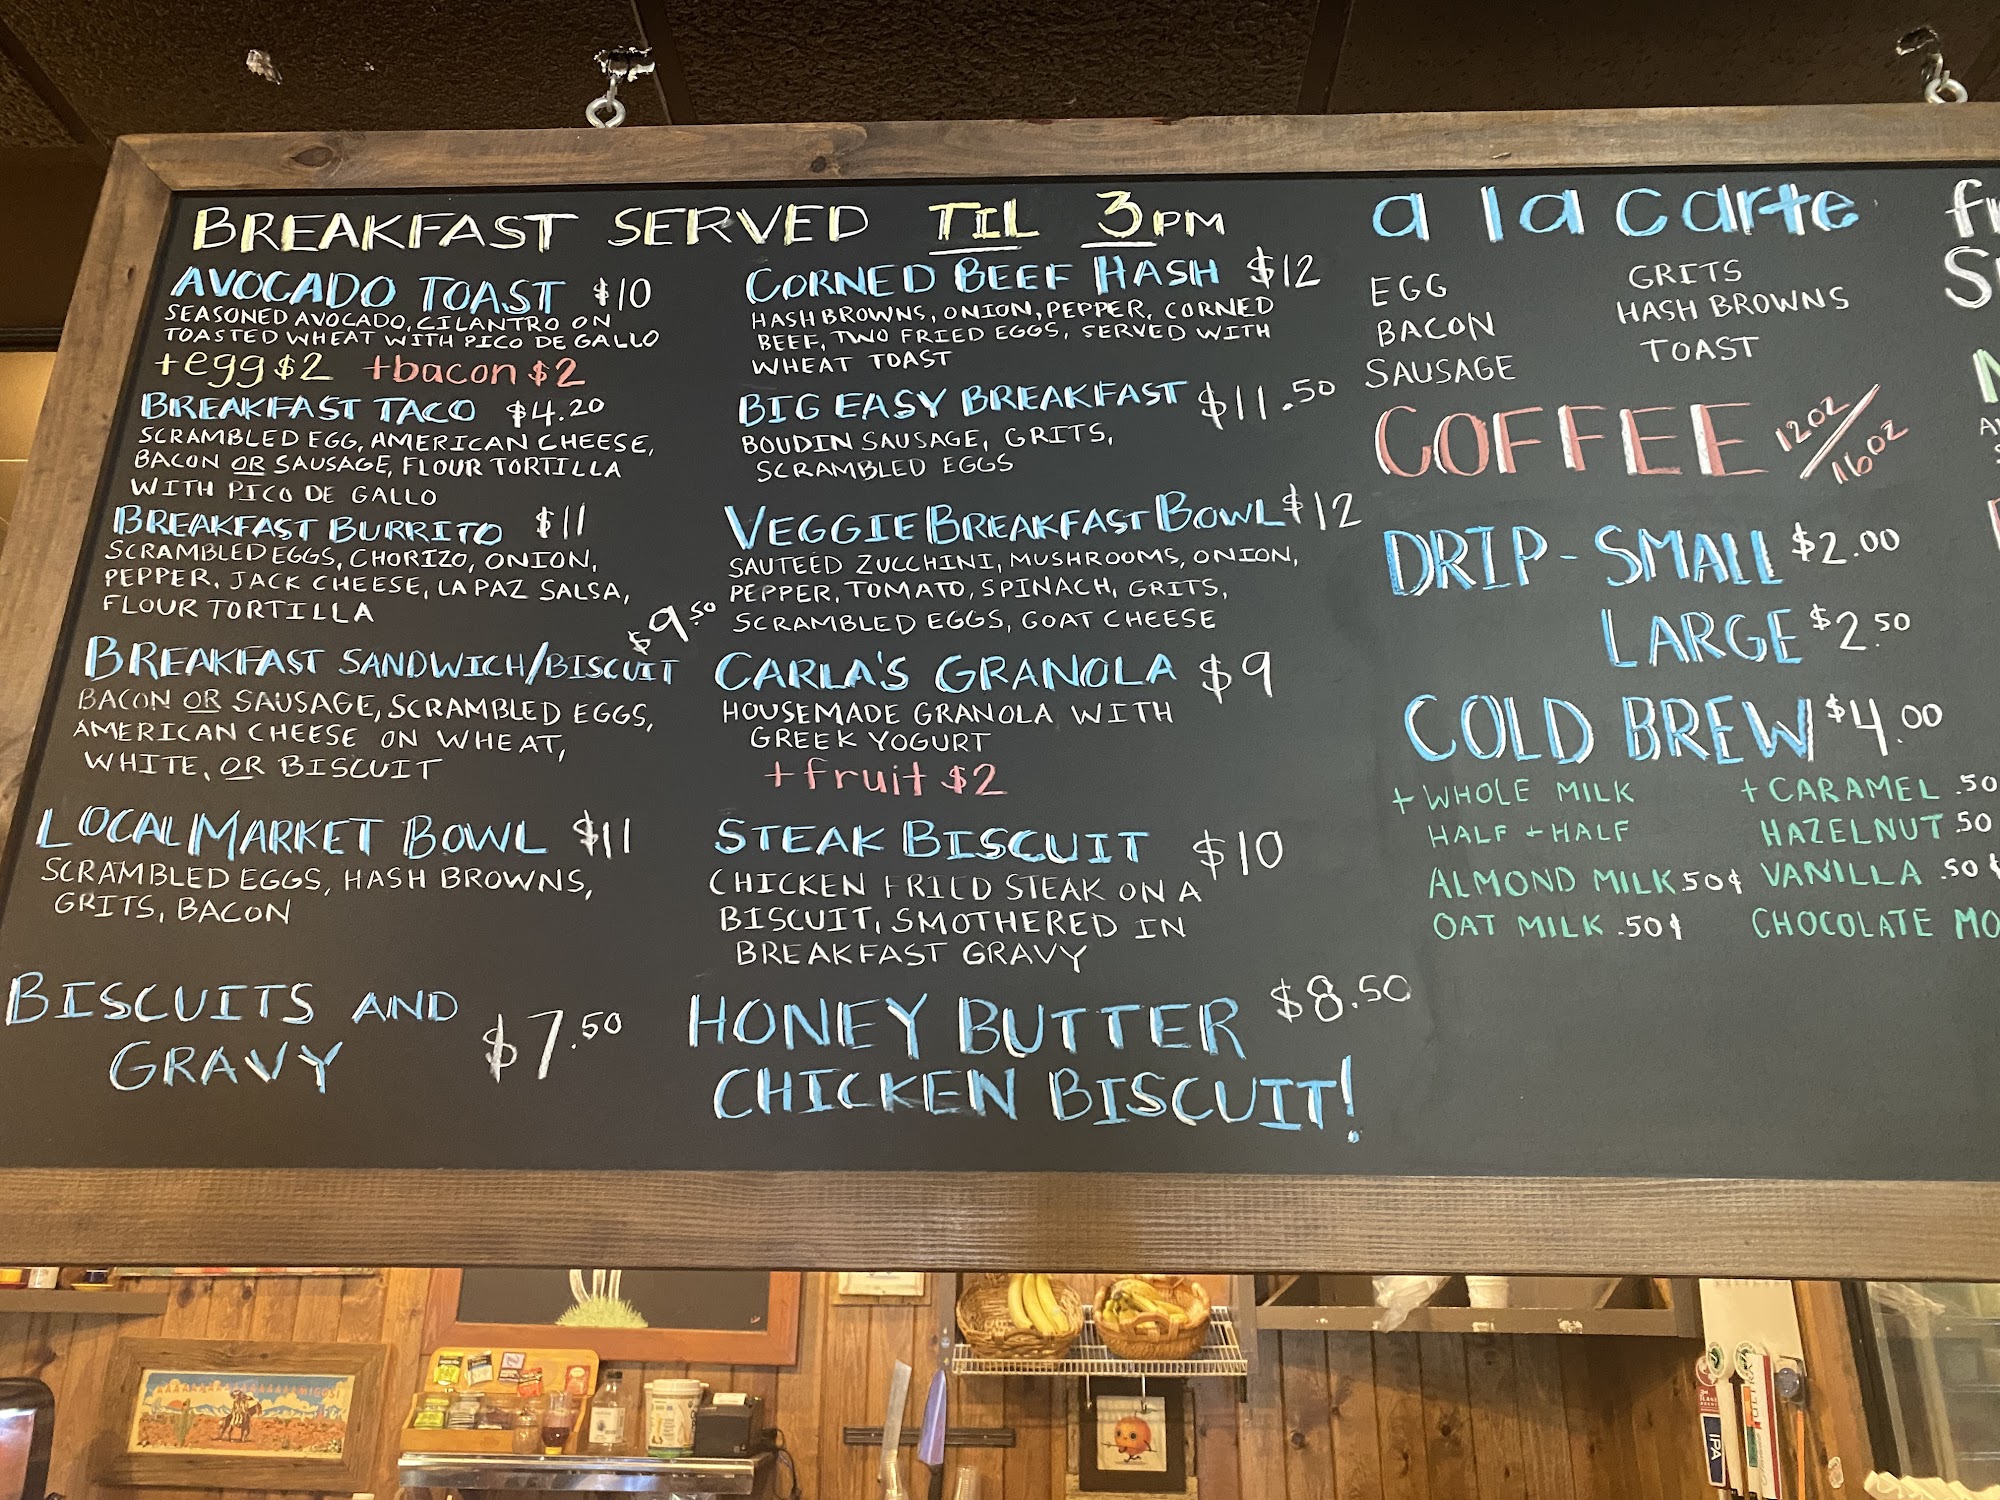 BREAKFAST SERVED TIL 3PM
AVOCADO TOAST $10
SEASONED AVOCADO, CILANTRO ON
TOASTED WHEAT WITH PICO DE GALLO
+egg $2 +bacon $2
BREAKFAST TACO $4.20
SCRAMBLED EGG, AMERICAN CHEESE,
BACON OR SAUSAGE, FLOUR TORTILLA
WITH PICO DE GALLO
BREAKFAST BURRITO $11
SCRAMBLED EGGS, CHORIZO, ONION,
PEPPER, JACK CHEESE, LA PAZ SALSA,
FLOUR TORTILLA
BREAKFAST SANDWICH/BISCUIT $9.50
BACON OR SAUSAGE, SCRAMBLED EGGS,
AMERICAN CHEESE ON WHEAT,
WHITE, OR BISCUIT
LOCAL MARKET BOWL $11
SCRAMBLED EGGS, HASH BROWNS,
GRITS, BACON
BISCUITS AND
GRAVY $7.50
CORNED BEEF HASH $12
HASH BROWNS, ONION, PEPPER, CORNED
BEEF, TWO FRIED EGGS, SERVED WITH
WHEAT TOAST
BIG EASY BREAKFAST $11.50
BOUDIN SAUSAGE, GRITS,
SCRAMBLED EGGS
VEGGIE BREAKFAST BOWL $12
SAUTEED ZUCCHINI, MUSHROOMS, ONION,
PEPPER, TOMATO, SPINACH, GRITS,
SCRAMBLED EGGS, GOAT CHEESE
CARLA'S GRANOLA $9
HOUSEMADE GRANOLA WITH
GREEK YOGURT
+fruit $2
STEAK BISCUIT $10
CHICKEN FRIED STEAK ON A
BISCUIT, SMOTHERED IN
BREAKFAST GRAVY
HONEY BUTTER $8.50
CHICKEN BISCUIT!
a la carte
EGG
BACON
SAUSAGE
GRITS
HASH BROWNS
TOAST
COFFEE 12oz/16oz
DRIP - SMALL $2.00
LARGE $2.50
COLD BREW $4.00
+ WHOLE MILK
HALF + HALF
ALMOND MILK .50¢
OAT MILK .50¢
+ CARAMEL .50
HAZELNUT .50
VANILLA .50¢
CHOCOLATE MO
IPA
ULTRA